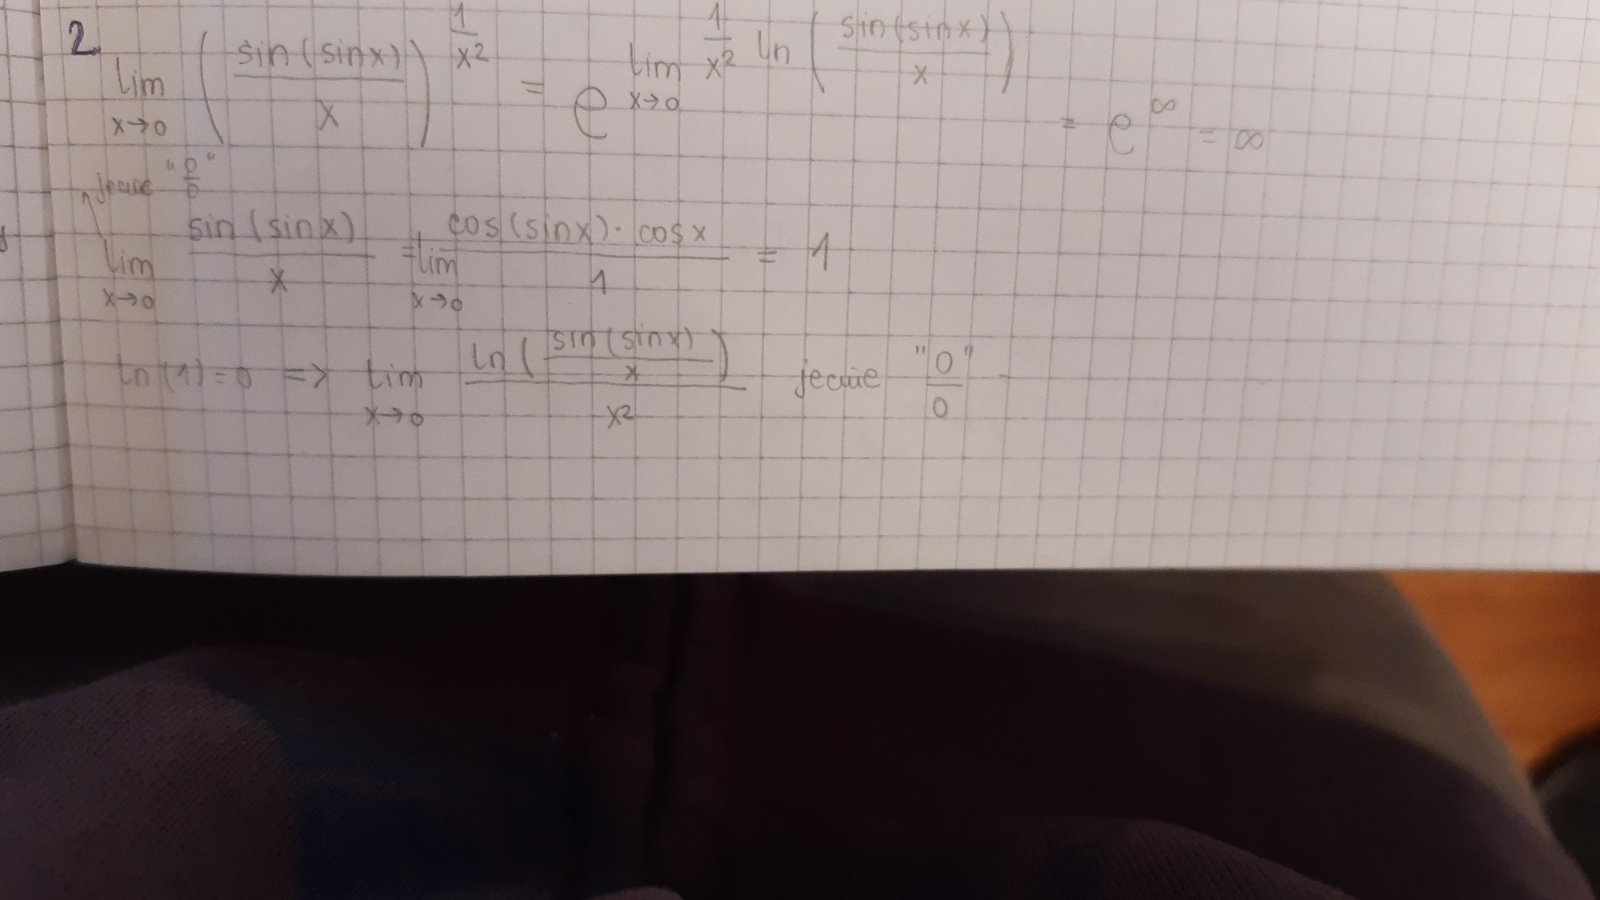 2.
lim x→0 ( sin(sinx) / x )^(1/x²) = e^( lim x→0 1/x² ln( sin(sinx) / x ) ) = e^∞ = ∞
"0/0"
lim x→0 sin(sinx) / x = lim x→0 cos(sinx)·cosx / 1 = 1
ln(1)=0 => lim x→0 ln( sin(sinx) / x ) / x² "0/0"